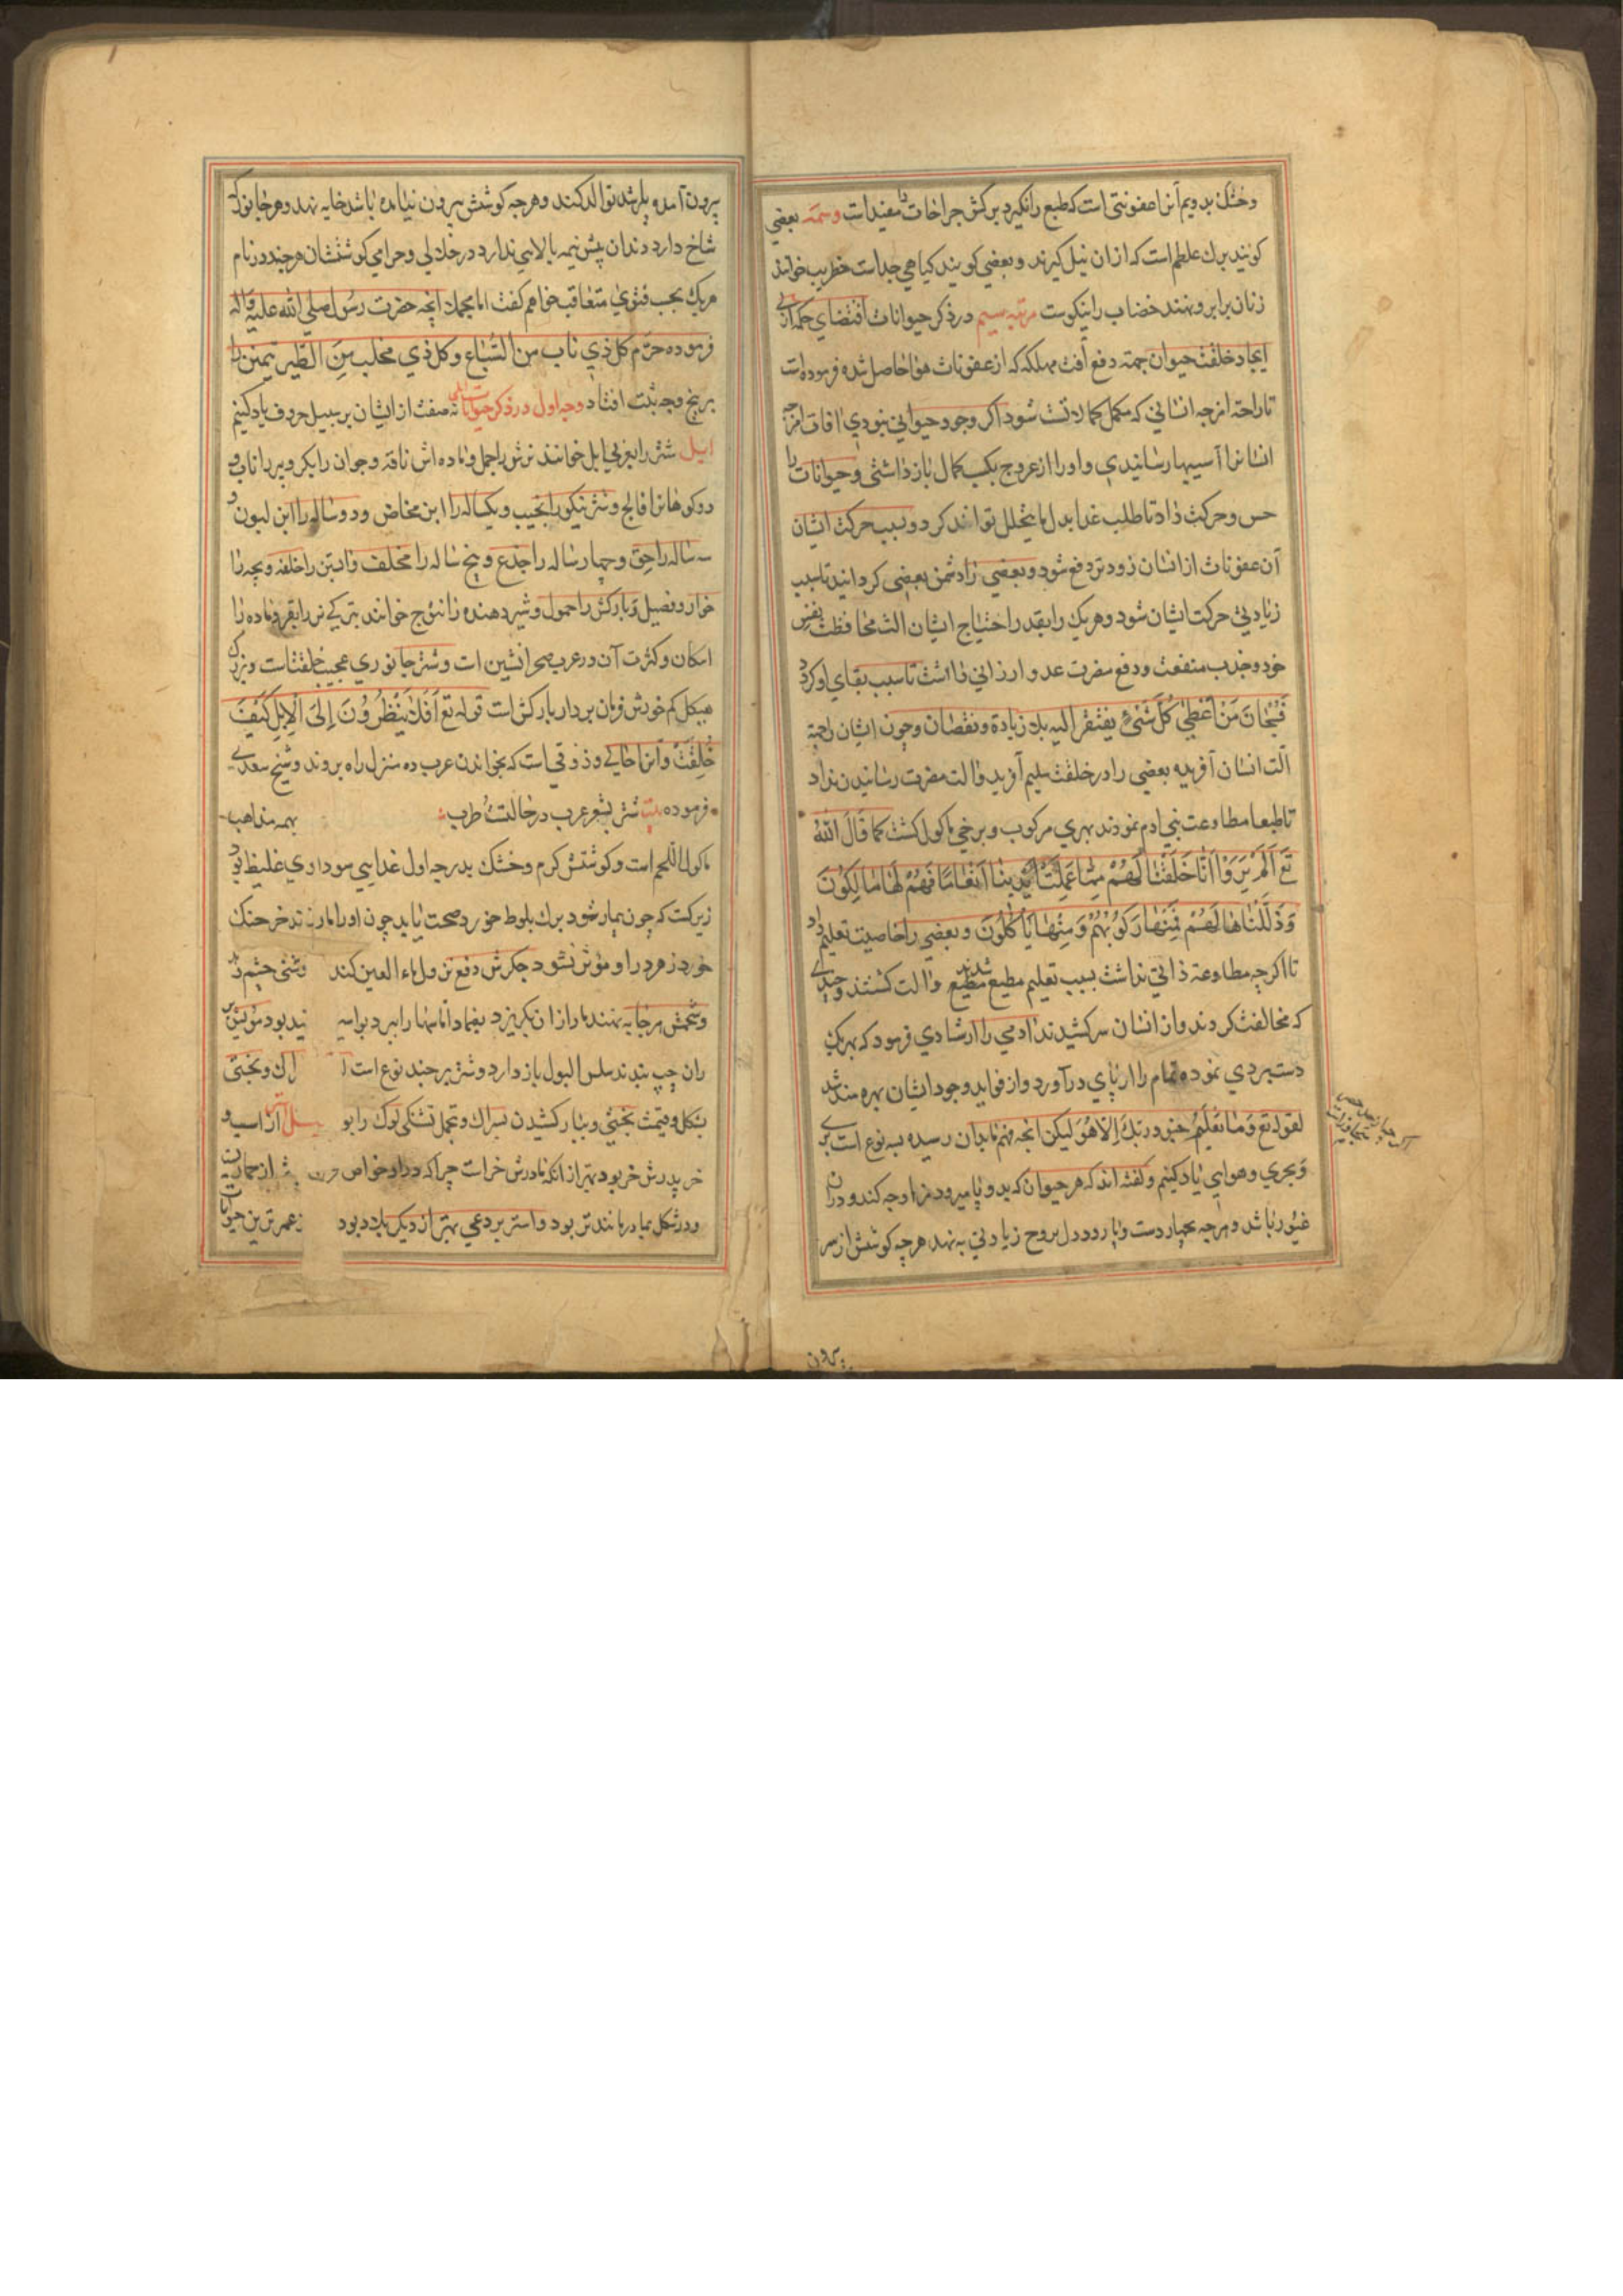 وخشک بدویم آنرا عفونتی است که طبع را نگیرد برکش جراحات را مفید است وسمه بعضی
کویند برک عظلم است که از ان نیل کیرند و بعضی کویند کیاهی جداست خوانند
زنان برابرو نهند خضاب را نیکوست مرتبه سیم در ذکر حیوانات اقتضای حکم ازلی
ایجاد خلقت حیوان جهته دفع آفت مهلکه که از عفونات هوا حاصل شده فرموده است
تا راحة امزجه انسانی که مکمل کمالاتست شود اکر وجود حیوانی نبودی افات امزجه
انسانرا آسیبها رسانیدی و او را از عروج بکسب کمال باز داشتی و حیوانات را
حس و حرکت داد تا طلب غذا بدل مایتحلل توانند کرد و بسبب حرکت ایشان
آن عفونات از انسان زودتر دفع شود و بعضی را دشمن بعضی کردانید تا سبب
زیادتی حرکت ایشان شود و هریک را بقدر احتیاج ایشان الت محافظت نفس
خود و جذب منفعت و دفع مضرت عدو ارزانی داشت تا سبب بقای او کردد
فسبحان من اعطی کل شئ یفتقر الیه بلا زیادة و نقصان و چون ایشان را جهة
الت انسان آفریده بعضی را در خلقت سلیم آفرید و الت مضرت رسانیدن نداد
تا طبعا مطاوعت بنی ادم نمودند بهری مرکوب و برخی ماکول کشت کما قال الله
تع اَلَمْ یَرَوْا اَنَّا خَلَقْنَا لَهُمْ مِمَّا عَمِلَتْ اَیْدِینَا اَنْعَامًا فَهُمْ لَهَا مَالِکُونَ
وَذَلَّلْنَاهَا لَهُمْ فَمِنْهَا رَکُوبُهُمْ وَمِنْهَا یَأْکُلُونَ و بعضی را خاصیت تعلیم داد
تا اکرچه مطاوعة ذاتی نداشت بسبب تعلیم مطیع شدند مطیع و الت کشتند و چندی
که مخالفت کردند و از انسان سر کشیدند ادمی را ارشادی فرمود که بهریک
دستبردی نموده تمام را از پای درآورد و از فواید وجود ایشان بهره مند شد
لقوله تع وَمَا یَعْلَمُ جنود ربک اِلا هُوَ لیکن انچه فهم ما بدان رسیده بسه نوع است بری
و بحری و هوایی یاد کنیم و کفته اند که هر حیوان که بدو پا میرود نزاوجه کند و دران
غیور باشد و هرچه بچهار دست و پا رود دل بروح زیادتی به نهد هرچه کوشش از سر
بیرون
بیرون آمده باشد توالد کنند و هرچه کوشش بیرون نیامده باشد خایه نهد و هر جانور که
شاخ دارد دندان پیش نیمه بالایی ندارد در حلالی و حرامی کوشتشان هرچند در نام
هریک بحسب فتوی متعاقب خواهم کفت اما مجملا انچه حضرت رسول صلی الله علیه و آله
فرموده حرّم کل ذي ناب من السّباع و کل ذي مخلب مِنَ الطّیر یمنین را
بر پنج وجه ثبت افتاد وجه اول در ذکر حیوانات اهلی نه صفت از ایشان بر سبیل حروف یاد کنیم
ابل شتر را بعربی ابل خوانند نرش را جمل و ماده اش ناقة و جوان را بکر و پیر را ناب و
دو کوهانرا فالج و شتر نیکو را نجیب و یکساله را ابن مخاض و دو ساله را ابن لبون و
سه ساله را حق و چهار ساله را جذع و پنج ساله را مخلف و آبستن را خلفه و بچه را
خوار و فصیل و بارکش را حمول و شیر دهنده را خوانند بترکی نر را بغر و ماده را
امکان و کثرت آن در عرب صحرا نشین است و شتر جانوری عجیب خلقتست و بزرک
هیکل کم خورش فرمان بردار بارکش است قوله تع اَفَلَا یَنْظُرُونَ اِلَی الْاِبِلِ کَیْفَ
خُلِقَتْ و آنرا حالی و ذوقی است که بخواندن عرب ده منزل راه بروند و شیخ سعدی
فرموده بیت شتر بشعر عرب در حالتست طرب بهمه مذاهب
ماکول اللحم است و کوشتش کرم و خشک بدرجه اول غذایی سوداوی غلیظ بود
زیرکست که چون بیمار شود برک بلوط خورد صحت یابد چون او را مار خرچنک
خورد زهر درا و موثر نشود جکرش دفع نزول ماء العین کند روشنی چشم
و شحمش هرجا به نهند مار از ان بگریزد بود مویش
ران چپ بندند سلس البول باز دارد و شتر بر چند نوع است و بختی
بشکل و قیمت بختی و ببار کشیدن بسراک و تحمل تشنکی لوک را استر از اسب و
خر پدرش خر بود بهتر از انکه مادرش خراست چراکه در او خواص
و در شکل بمادر مانندتر بود و استر بردعی بهتر از دیکر بلاد بود ترین حیوانات